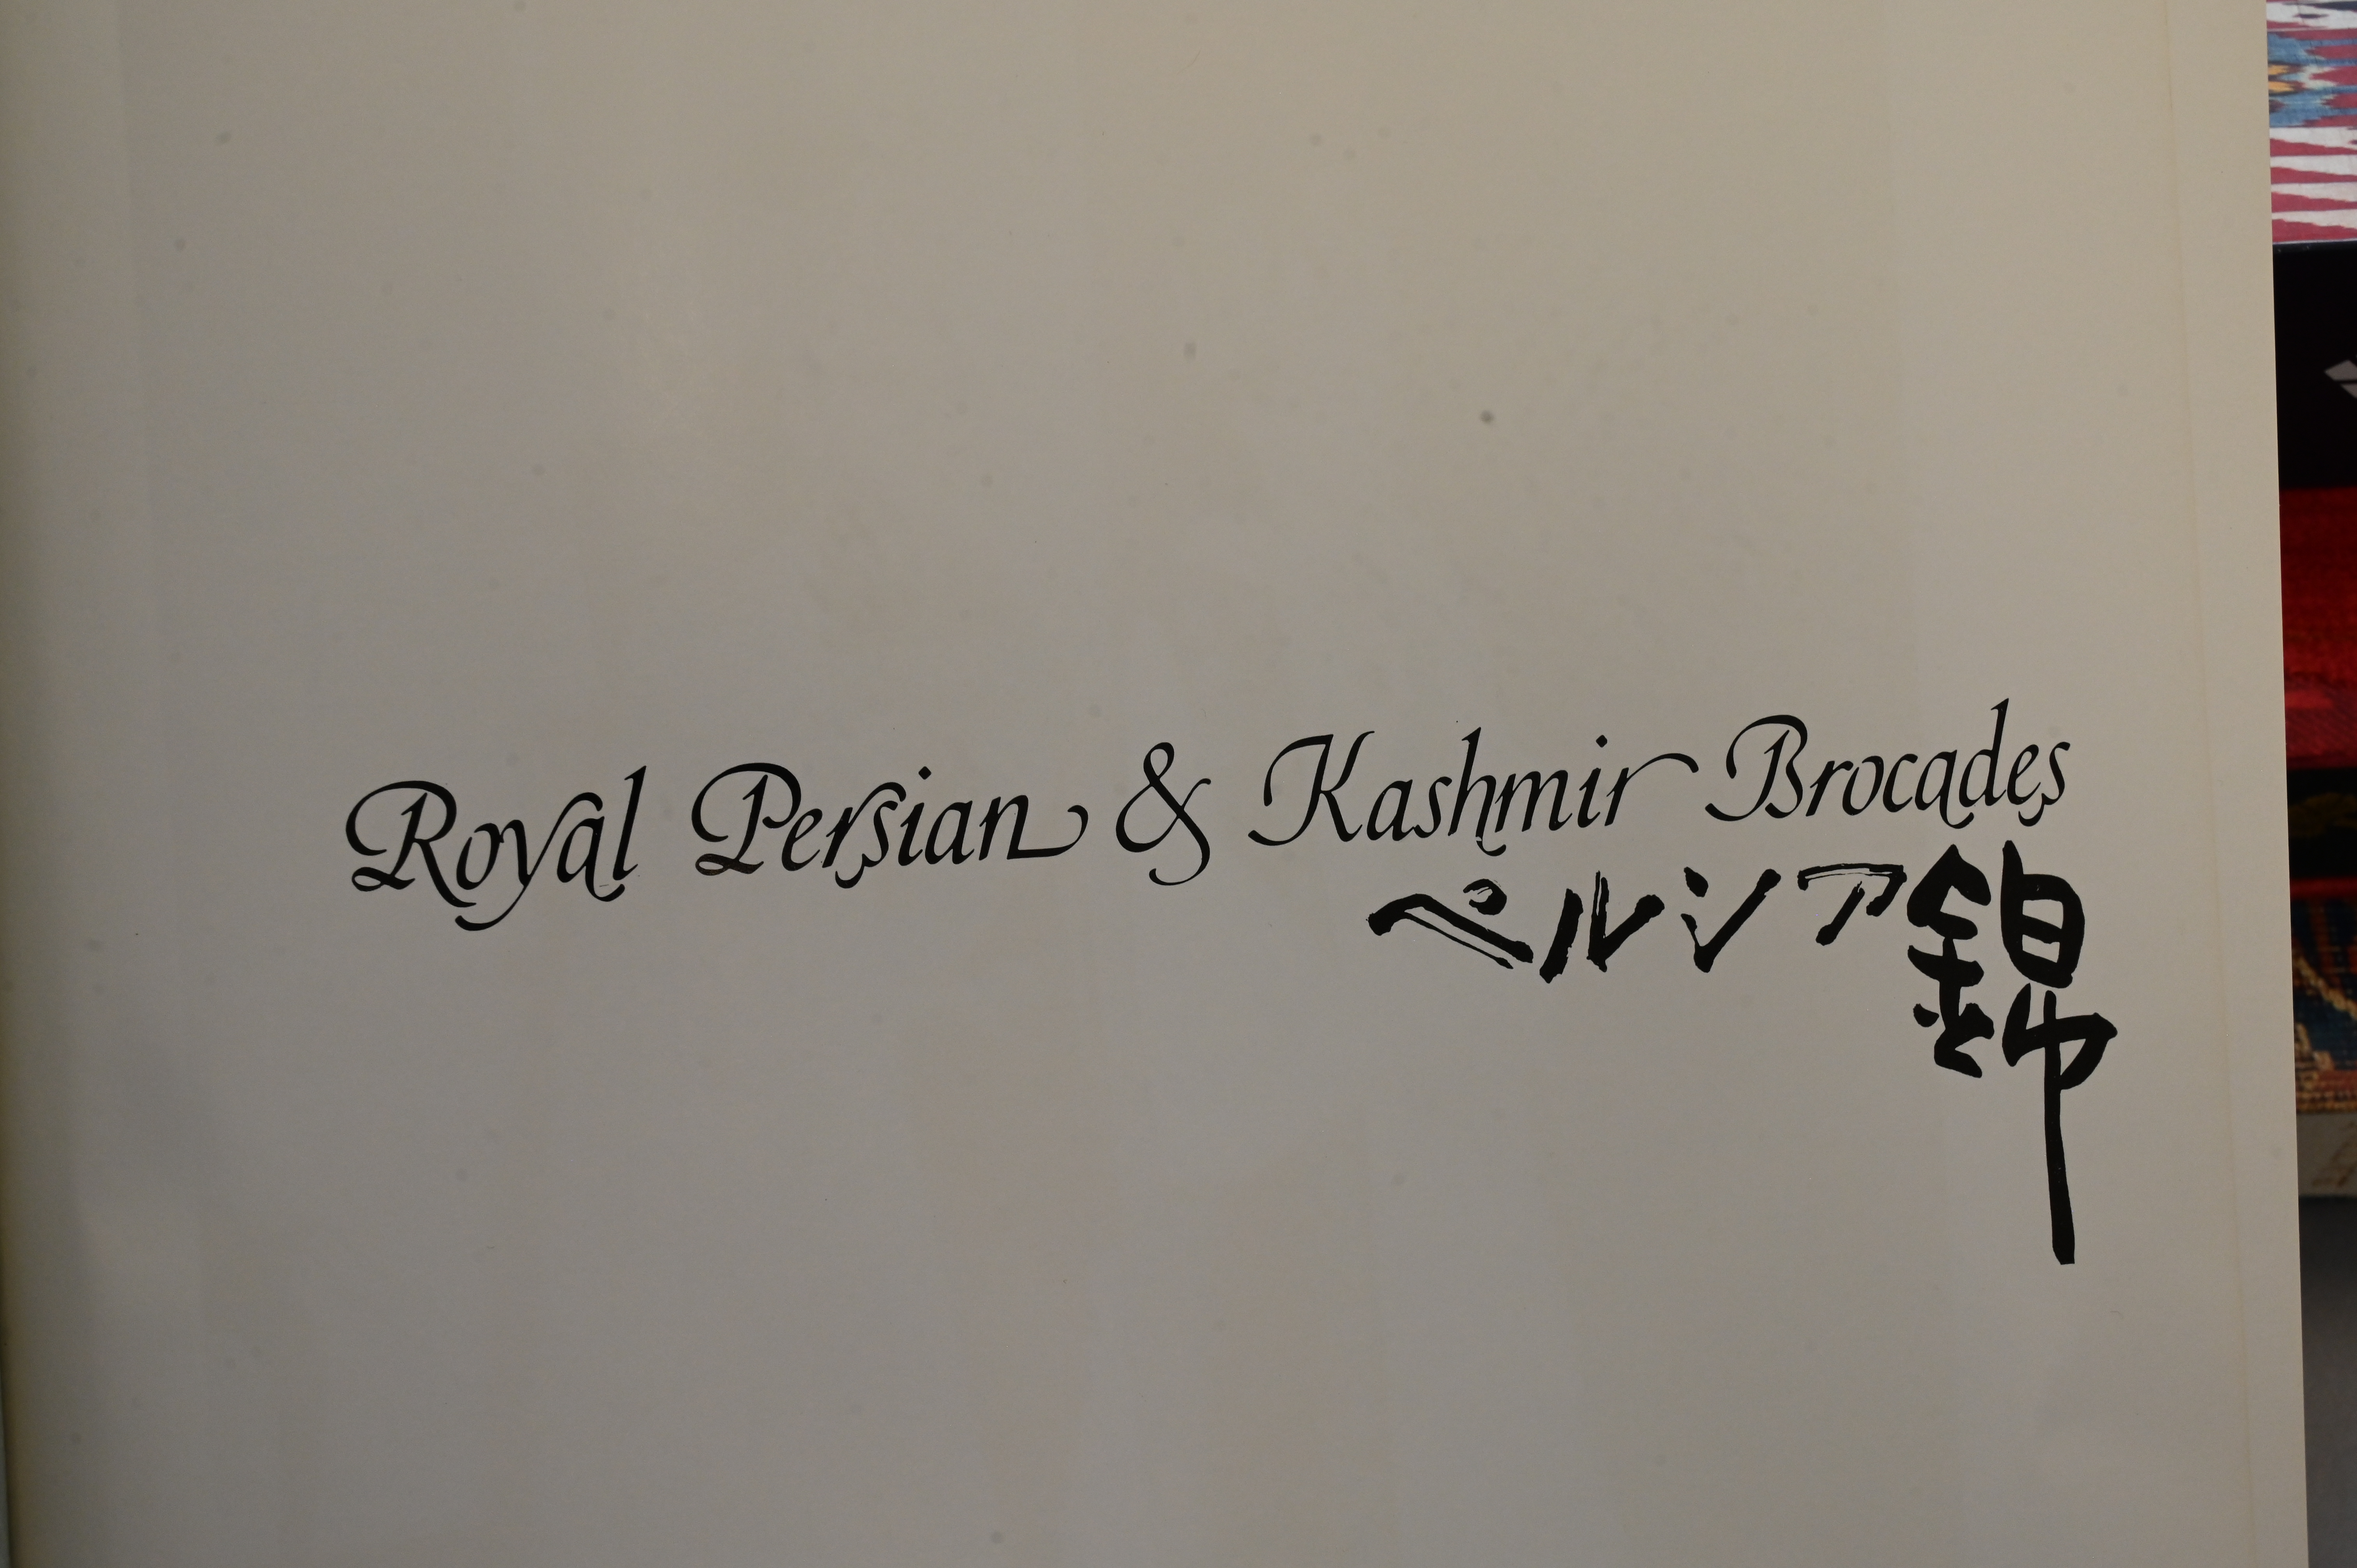 Royal Persian & Kashmir Brocades
ペルシア錦